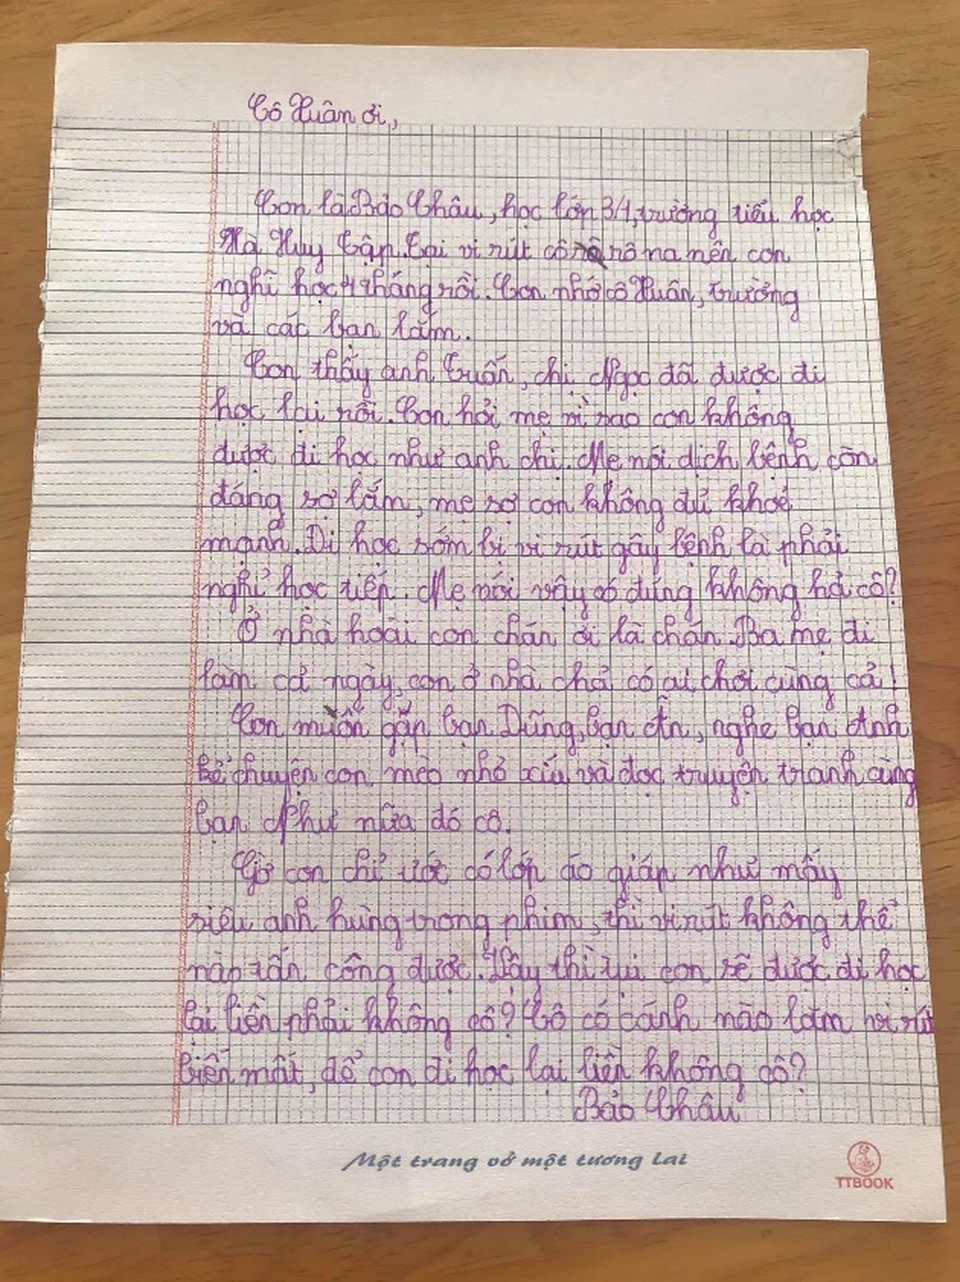 Cô Xuân ơi,
Con là Bảo Châu, học lớp 3/1, trường tiểu học
Hà Huy Tập. Tại vi rút cô rô na nên con
nghỉ học 4 tháng rồi. Con nhớ cô Xuân, trường
và các bạn lắm.
Con thấy anh Tuấn, chị Ngọc đã được đi
học lại rồi. Con hỏi mẹ vì sao con không
được đi học như anh chị. Mẹ nói dịch bệnh còn
đáng sợ lắm, mẹ sợ con không đủ khoẻ
mạnh. Đi học sớm bị vi rút gây bệnh là phải
nghỉ học tiếp. Mẹ nói vậy có đúng không hả cô?
Ở nhà hoài con chán ơi là chán. Ba mẹ đi
làm cả ngày, con ở nhà chả có ai chơi cùng cả!
Con muốn gặp bạn Dũng, bạn Ân, nghe bạn Anh
kể chuyện con mèo nhỏ xíu và đọc truyện tranh cùng
bạn Như nữa đó cô.
Giờ con chỉ ước có lớp áo giáp như mấy
siêu anh hùng trong phim, thì vi rút không thể
nào tấn công được. Vậy thì tụi con sẽ được đi học
lại liền phải không cô? Cô có cánh nào làm vi rút
biến mất, để con đi học lại liền không cô?
Bảo Châu
Một trang vở một tương lai
TTBOOK